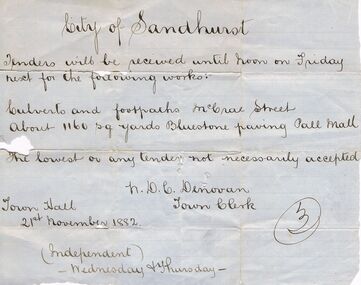 City of Sandhurst
Tenders will be received until Noon on Friday
next for the following works:
Culverts and footpaths McCrae Street
About 1160 sq yards Bluestone paving Pall Mall
The lowest or any tender not necessarily accepted
W. D. C. Denovan
Town Clerk
Town Hall
21st November 1882.
3
(Independent)
- Wednesday & Thursday -